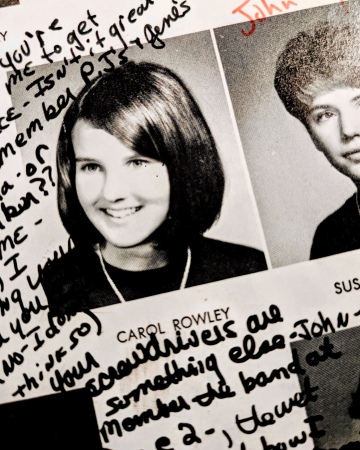 John
you're
me to get
CE-Isn't it great
member P.J's + Gene's
a-or
??
ME-
, I
ng you
d you
(NO-I don't
think so)
your
CAROL ROWLEY
SUS
screwdrivers are
something else-John-
Member the band at
e 2-, the wet
how I